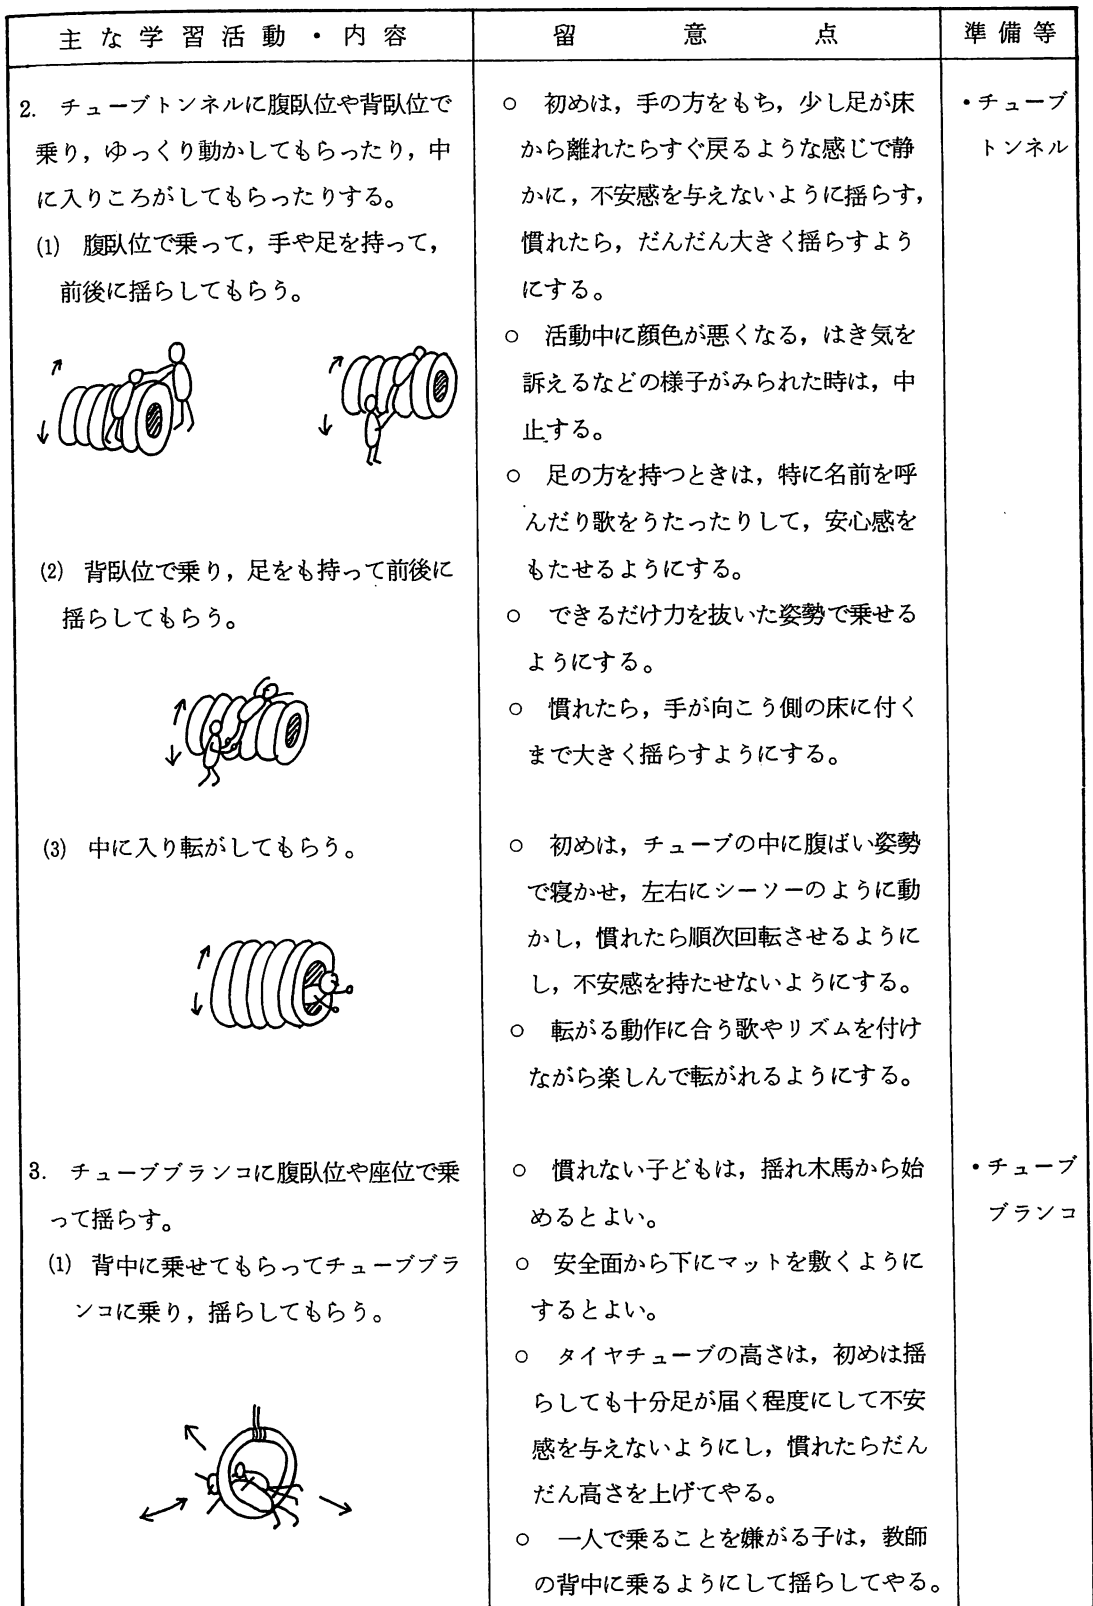 主な学習活動・内容
留意点
準備等
2. チューブトンネルに腹臥位や背臥位で
乗り，ゆっくり動かしてもらったり，中
に入りころがしてもらったりする。
(1) 腹臥位で乗って，手や足を持って，
前後に揺らしてもらう。
(2) 背臥位で乗り，足をも持って前後に
揺らしてもらう。
(3) 中に入り転がしてもらう。
3. チューブブランコに腹臥位や座位で乗
って揺らす。
(1) 背中に乗せてもらってチューブブラ
ンコに乗り，揺らしてもらう。
○ 初めは，手の方をもち，少し足が床
から離れたらすぐ戻るような感じで静
かに，不安感を与えないように揺らす，
慣れたら，だんだん大きく揺らすよう
にする。
○ 活動中に顔色が悪くなる，はき気を
訴えるなどの様子がみられた時は，中
止する。
○ 足の方を持つときは，特に名前を呼
んだり歌をうたったりして，安心感を
もたせるようにする。
○ できるだけ力を抜いた姿勢で乗せる
ようにする。
○ 慣れたら，手が向こう側の床に付く
まで大きく揺らすようにする。
○ 初めは，チューブの中に腹ばい姿勢
で寝かせ，左右にシーソーのように動
かし，慣れたら順次回転させるように
し，不安感を持たせないようにする。
○ 転がる動作に合う歌やリズムを付け
ながら楽しんで転がれるようにする。
○ 慣れない子どもは，揺れ木馬から始
めるとよい。
○ 安全面から下にマットを敷くように
するとよい。
○ タイヤチューブの高さは，初めは揺
らしても十分足が届く程度にして不安
感を与えないようにし，慣れたらだん
だん高さを上げてやる。
○ 一人で乗ることを嫌がる子は，教師
の背中に乗るようにして揺らしてやる。
・チューブ
トンネル
・チューブ
ブランコ